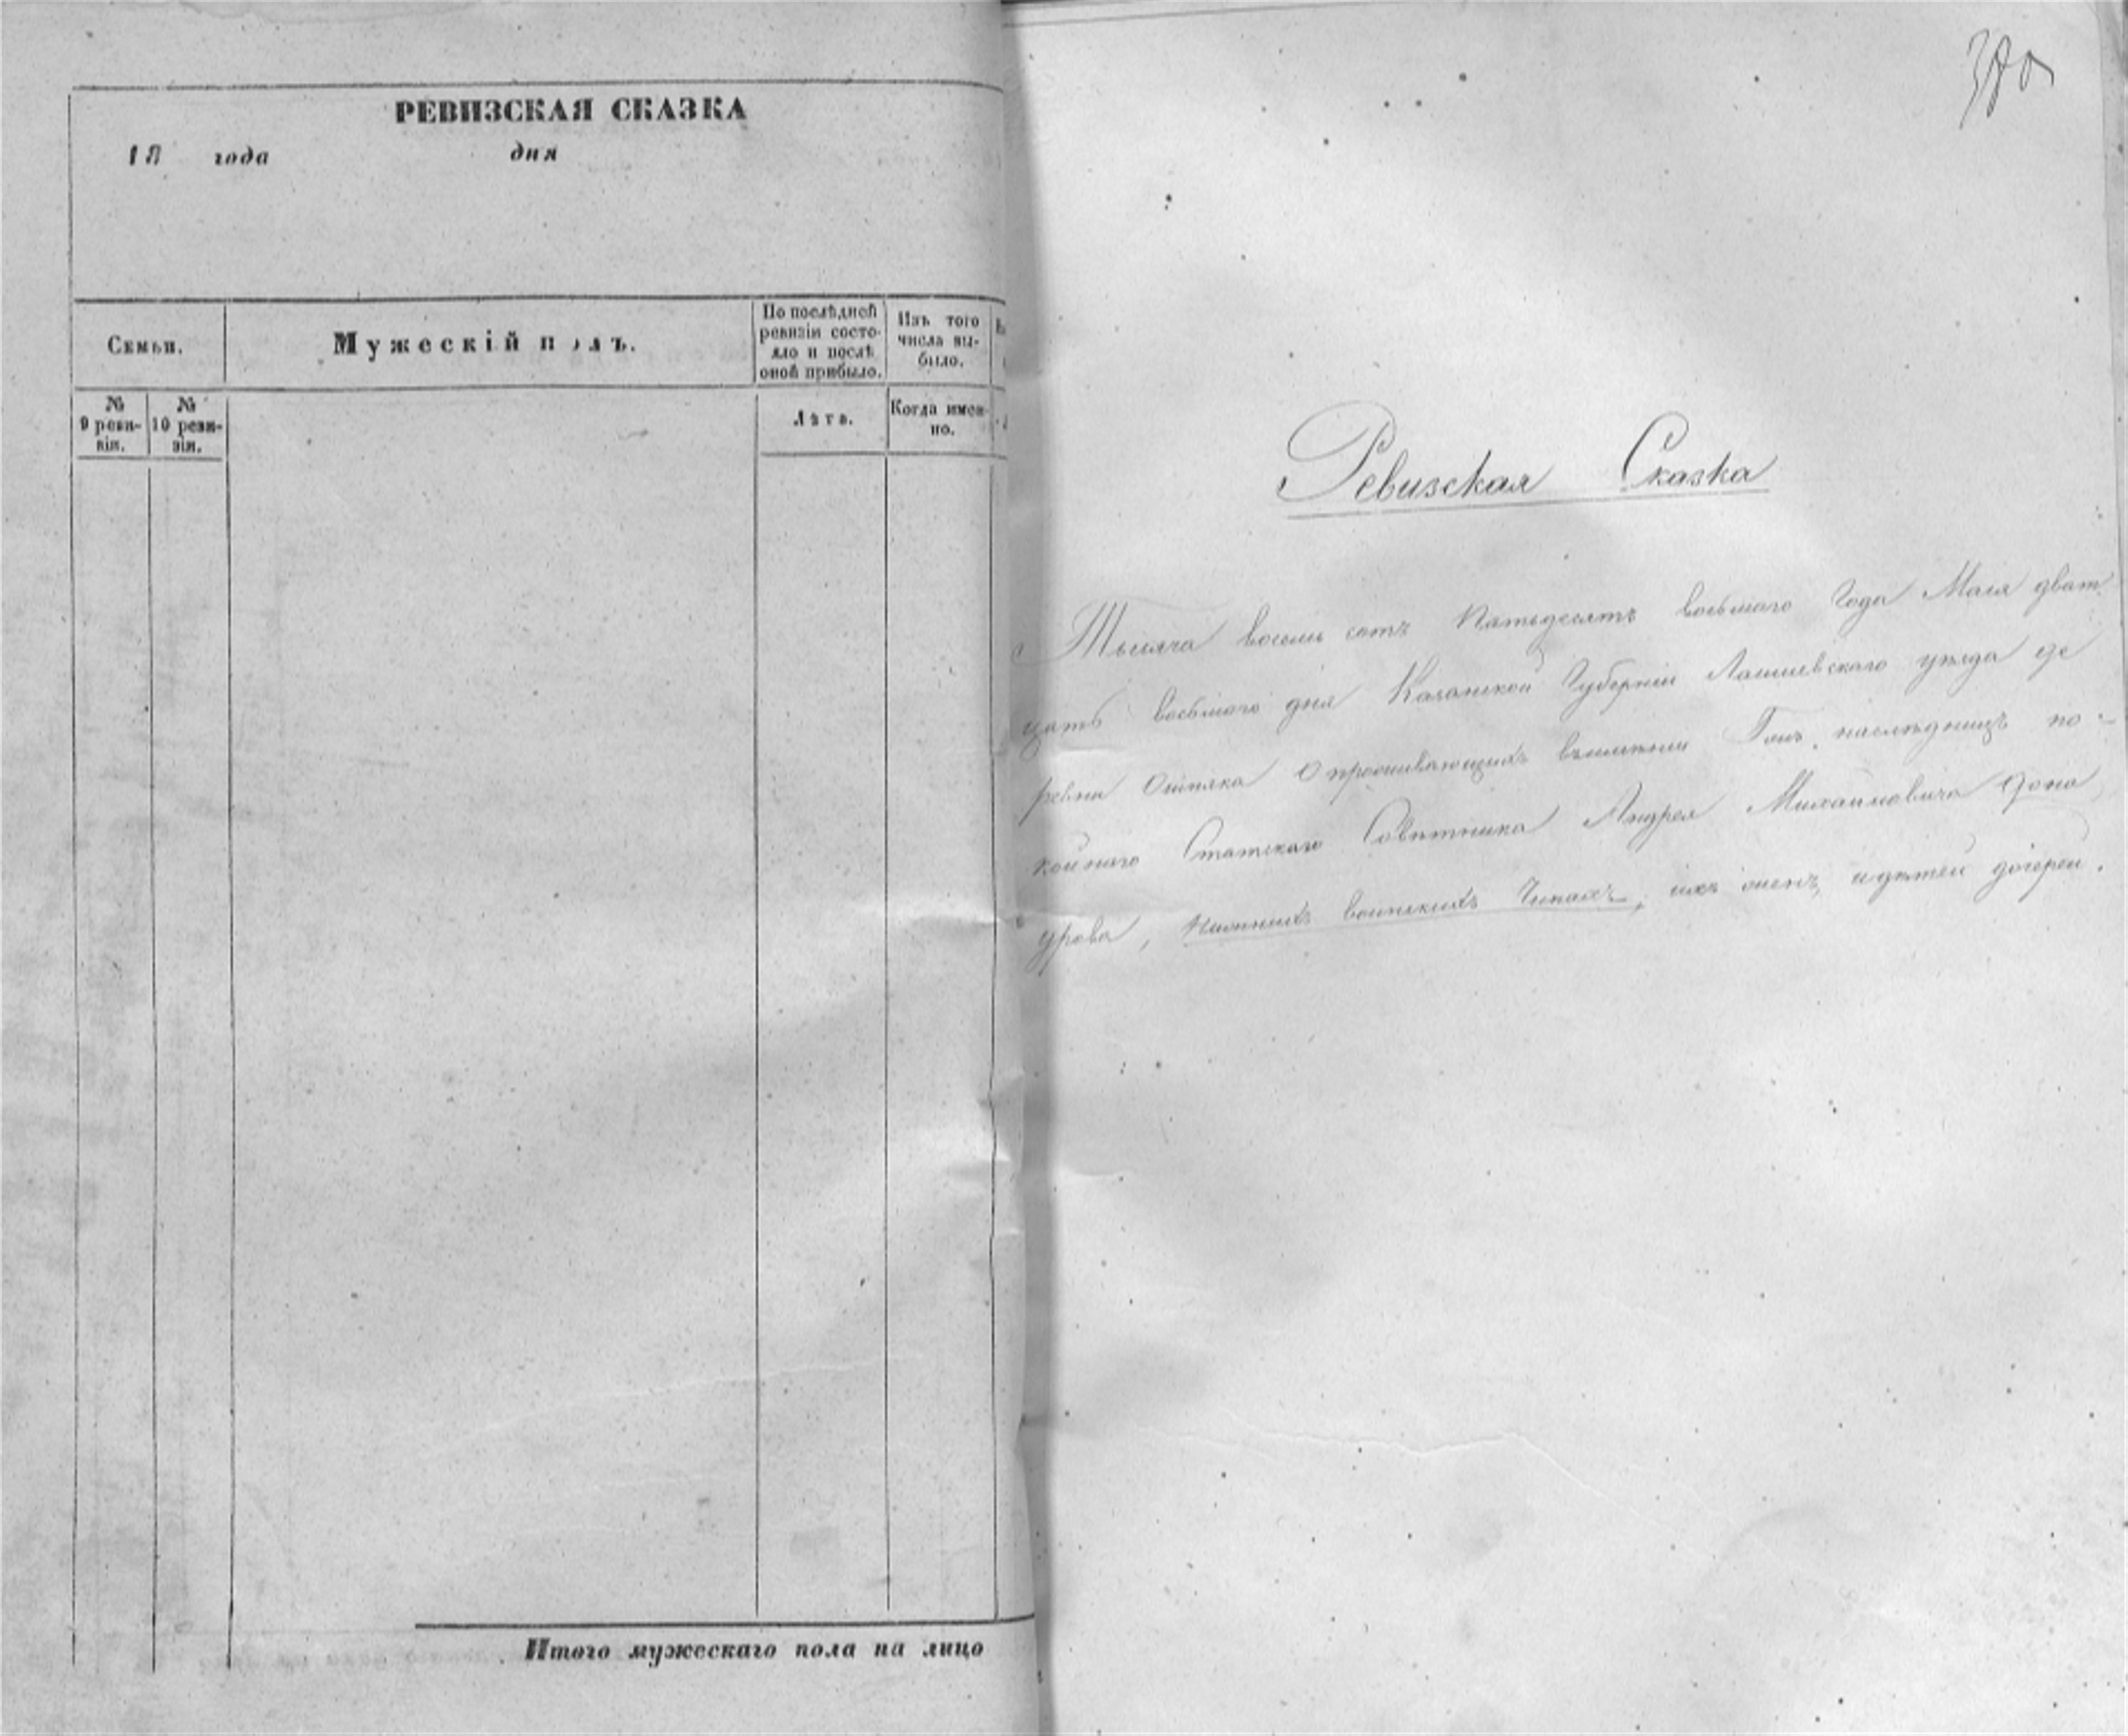 РЕВИЗСКАЯ СКАЗКА
18 года дня
Семьи.
Мужескій полъ.
По послѣдней
ревизіи состо-
яло и послѣ
оной прибыло.
Изъ того
числа вы-
было.
№
9 реви-
зіи.
№
10 реви-
зіи.
Лѣта.
Когда имен-
но.
Итого мужескаго пола на лицо
380
Ревизская Сказка
Тысяча восемь сотъ пятьдесятъ восьмаго Года Маія дват
цать восьмаго дня Казанской Губерніи Лаишевскаго уѣзда де
ревни Ошняка О проживающихъ въимѣніи наслѣдницъ по-
койнаго Статскаго Совѣтника Андрея Михайловича
урова, Нижнихъ воинскихъ Чинахъ, ихъ женъ, идѣтей дочерей.